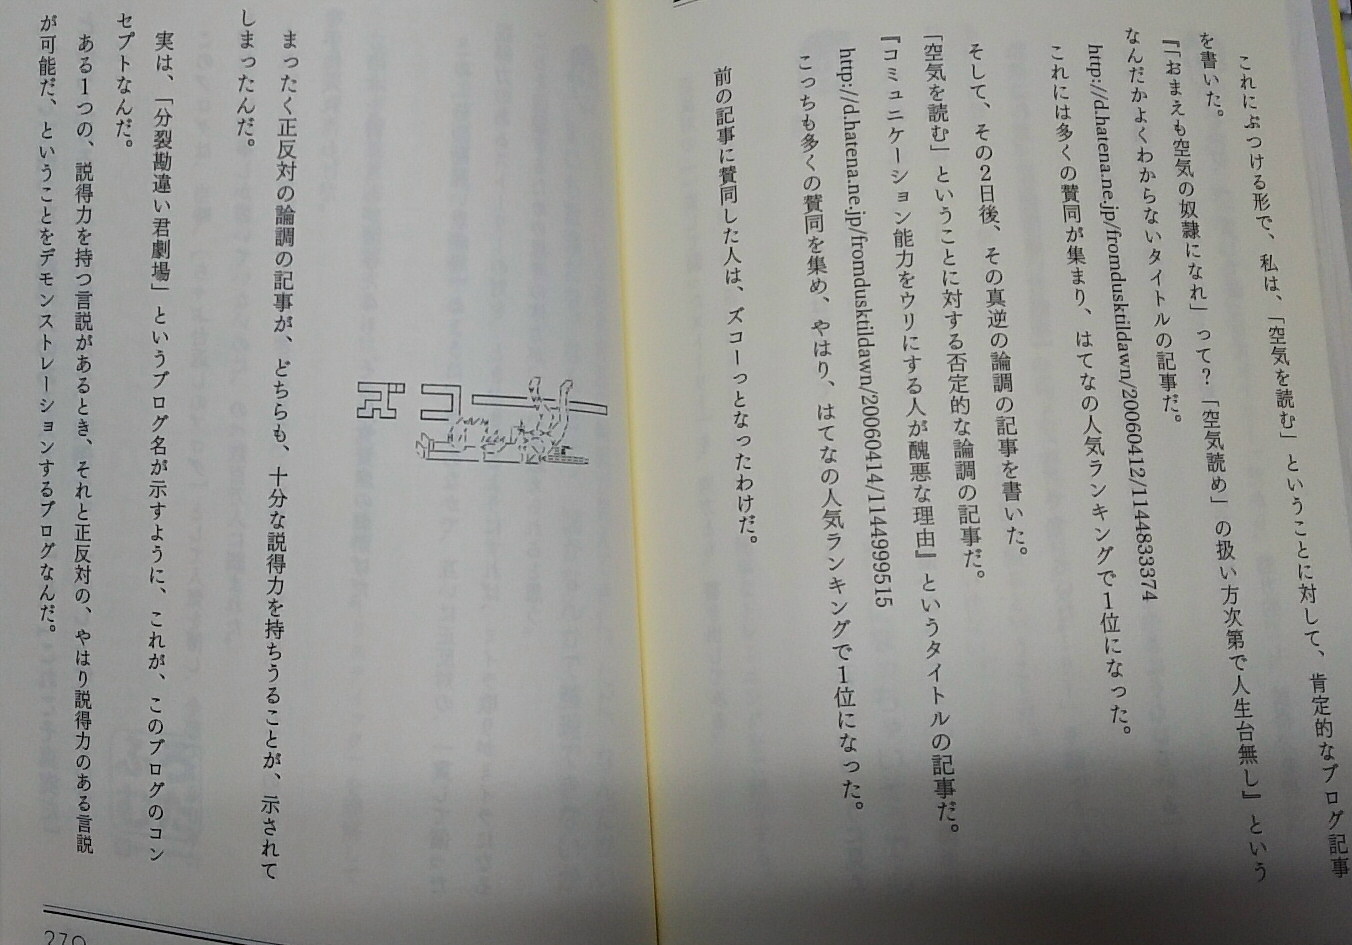 これにぶつける形で、私は、「空気を読む」ということに対して、肯定的なブログ記事
を書いた。
『「おまえも空気の奴隷になれ」って?「空気読め」の扱い方次第で人生台無し』という
なんだかよくわからないタイトルの記事だ。
http://d.hatena.ne.jp/fromdusktildawn/20060412/1144833374
これには多くの賛同が集まり、はてなの人気ランキングで1位になった。
そして、その2日後、その真逆の論調の記事を書いた。
「空気を読む」ということに対する否定的な論調の記事だ。
『コミュニケーション能力をウリにする人が醜悪な理由』というタイトルの記事だ。
http://d.hatena.ne.jp/fromdusktildawn/20060414/1144999515
こっちも多くの賛同を集め、やはり、はてなの人気ランキングで1位になった。
前の記事に賛同した人は、ズコーっとなったわけだ。
ズコー
まったく正反対の論調の記事が、どちらも、十分な説得力を持ちうることが、示されて
しまったんだ。
実は、「分裂勘違い君劇場」というブログ名が示すように、これが、このブログのコン
セプトなんだ。
ある1つの、説得力を持つ言説があるとき、それと正反対の、やはり説得力のある言説
が可能だ、ということをデモンストレーションするブログなんだ。
270